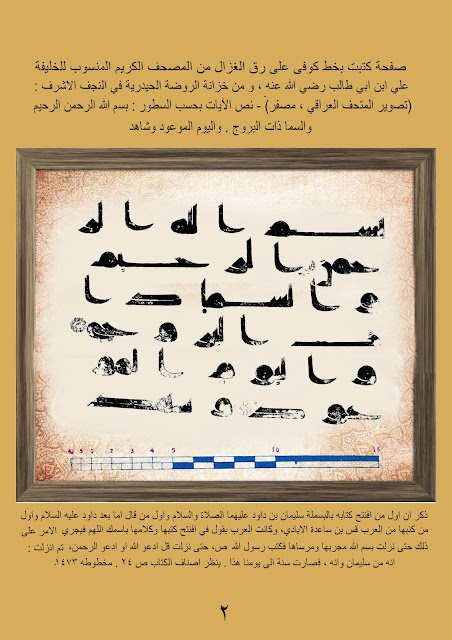 صفحة كتبت بخط كوفى على رق الغزال من المصحف الكريم المنسوب للخليفة
علي ابن ابي طالب رضي الله عنه ، و من خزانة الروضة الحيدرية في النجف الاشرف :
(تصوير المتحف العراقي ، مصفر) - نص الآيات بحسب السطور : بسم الله الرحمن الرحيم
والسما ذات البروج . واليوم الموعود وشاهد
بسم ا لله ا لر
حمن ا لر حيم
و ا لسما ذ ا
ت ا لبر و ج
و ا ليو م ا لمو
عو د و شا هد
5 10 15
ذكر ان اول من افتتح كتابه بالبسملة سليمان بن داود عليهما الصلاة والسلام واول من قال اما بعد داود عليه السلام واول
من كتبها من العرب قس بن ساعدة الايادي، وكانت العرب بقول في افتتح كتبها وكلامها باسمك اللهم فيجري الامر على
ذلك حتى نزلت بسم الله مجريها ومرساها فكتب رسول الله ص، حتى نزلت قل ادعو الله او ادعو الرحمن، ثم انزلت :
انه من سليمان وانه ، فصارت سنة الى يومنا هذا . ينظر اصناف الكتاب ص ٢٤ . مخطوطه ١٤٧٣.
٢